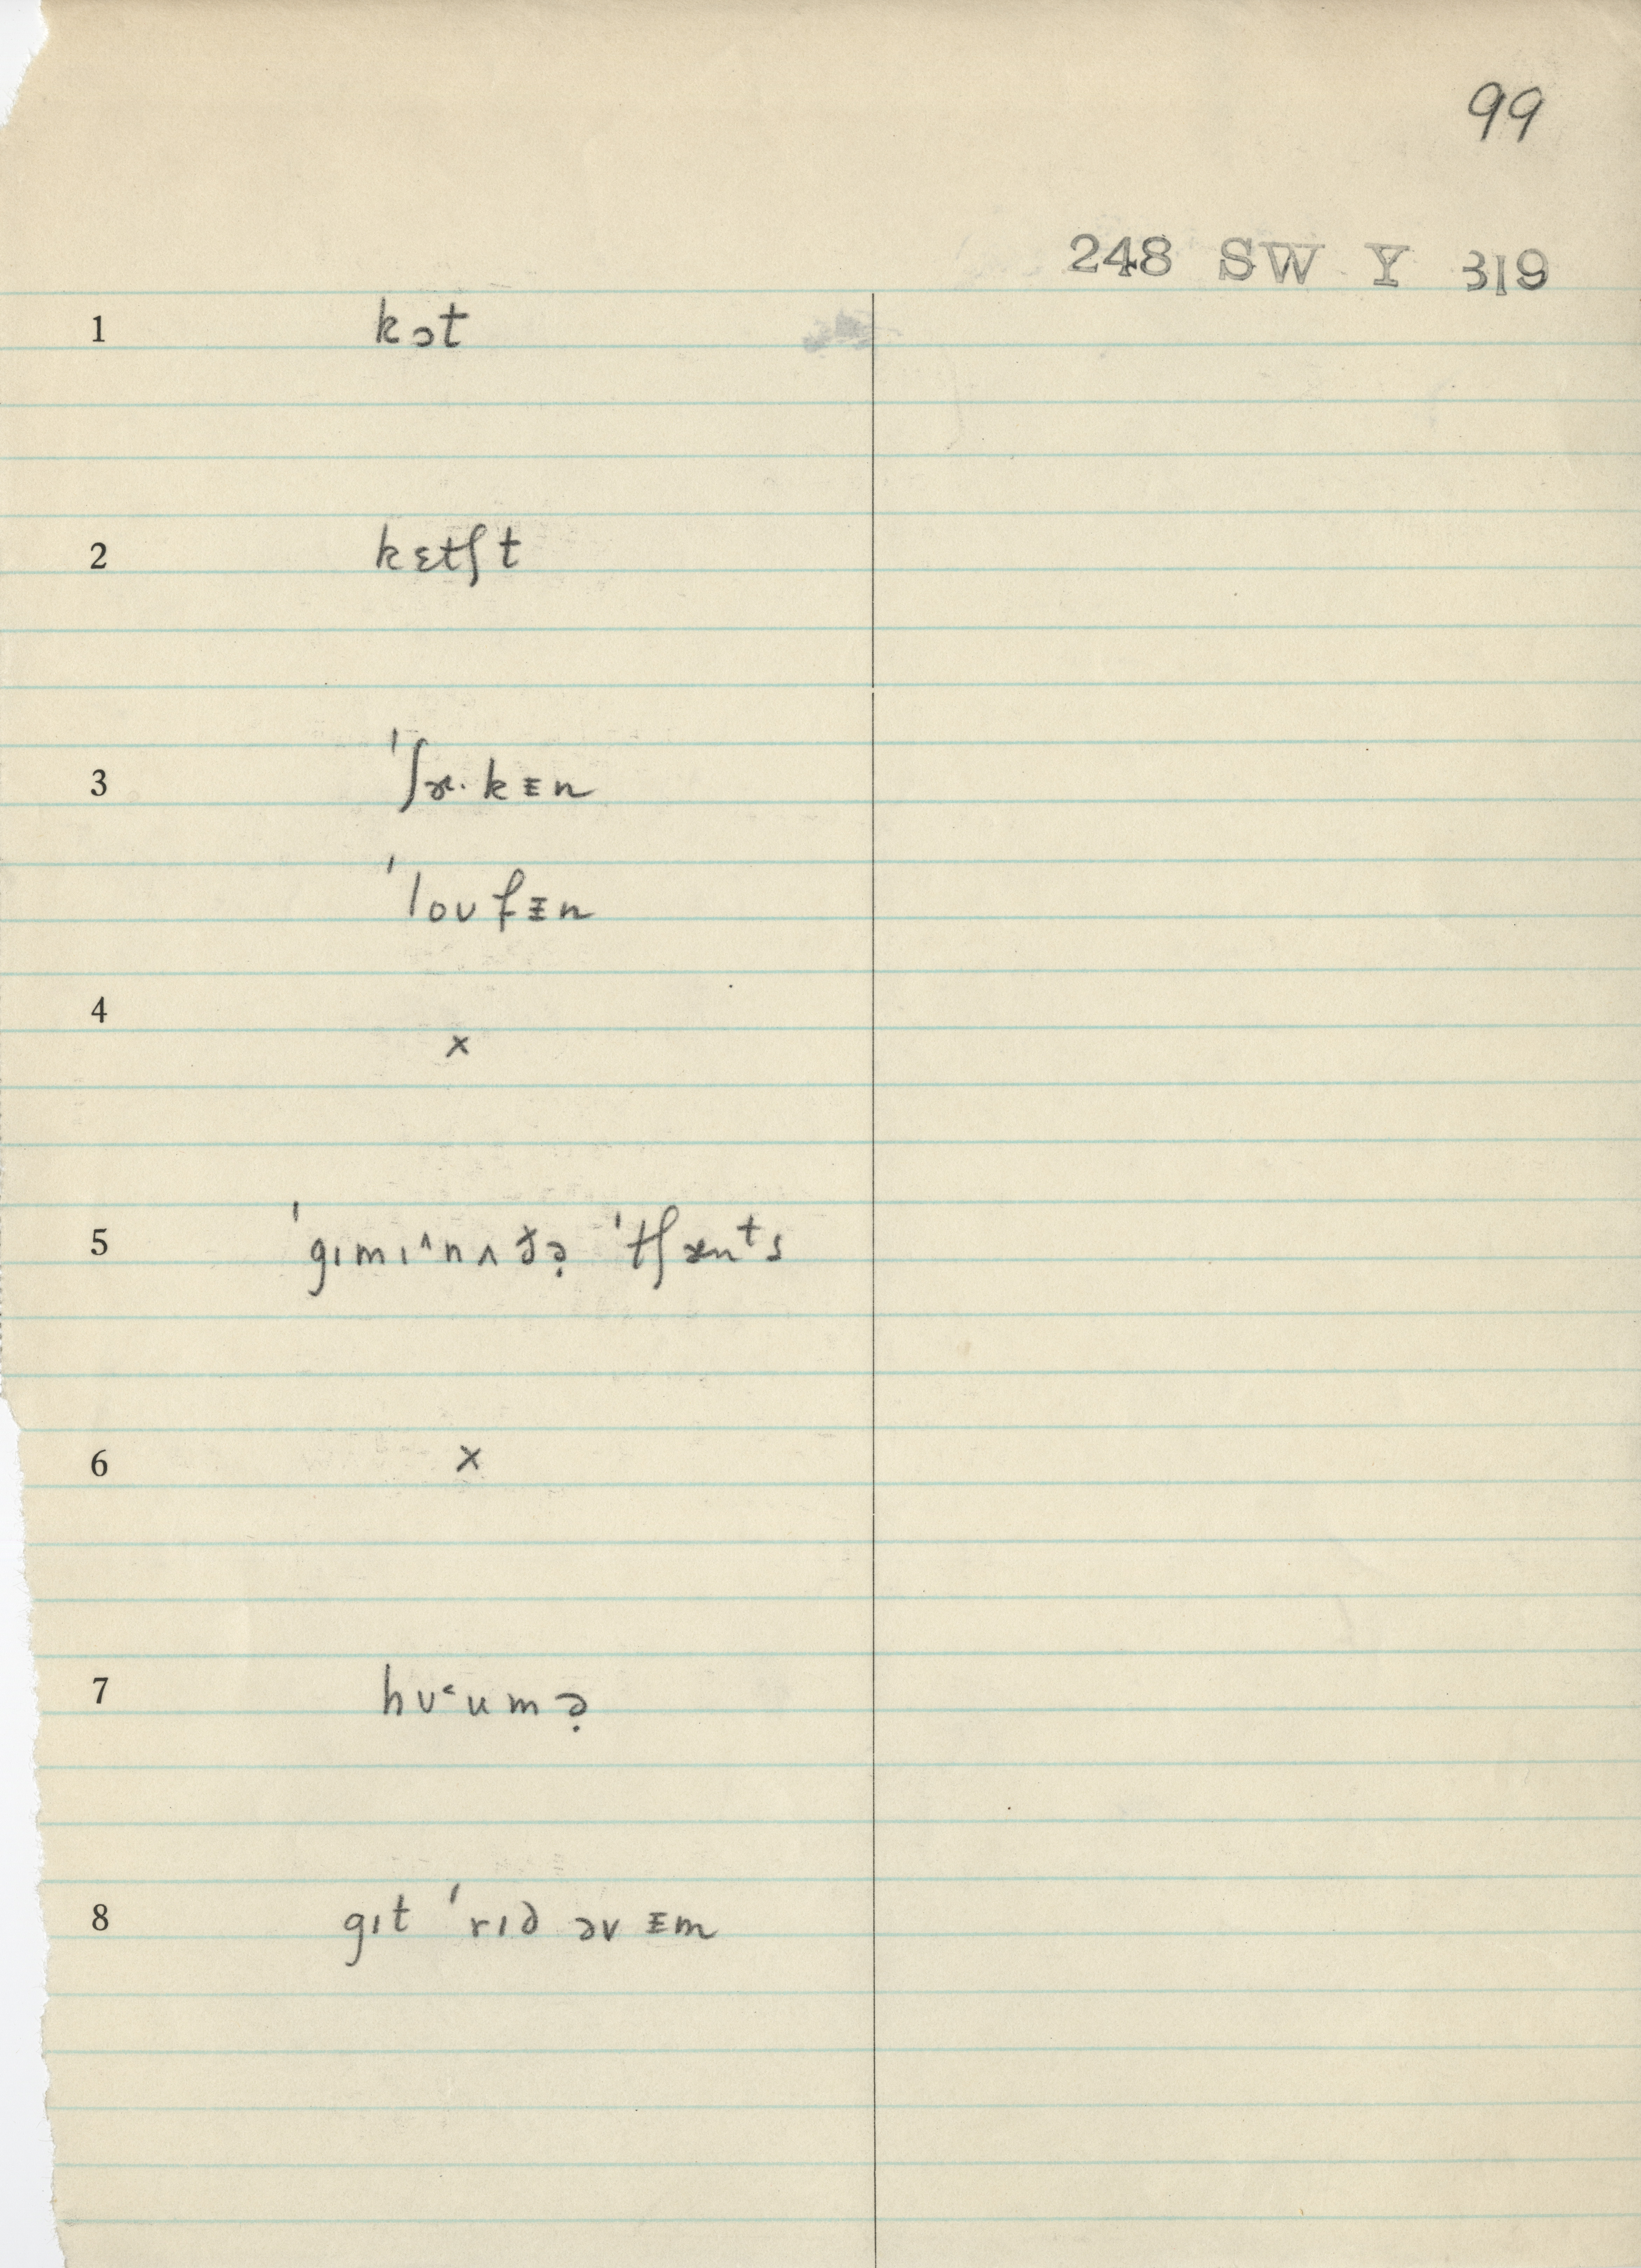 99
248 SW Y 319
1 kɔt
2 kɛtʃt
3 ˈʃɝ·kᵻn
ˈloʊfᵻn
4 x
5 ˈgɪmɪ^nʌðə̣ ˈtʃænᵗs
6 x
7 hʊ˂umə̣
8 gɪt ˈrɪd əv ᵻm